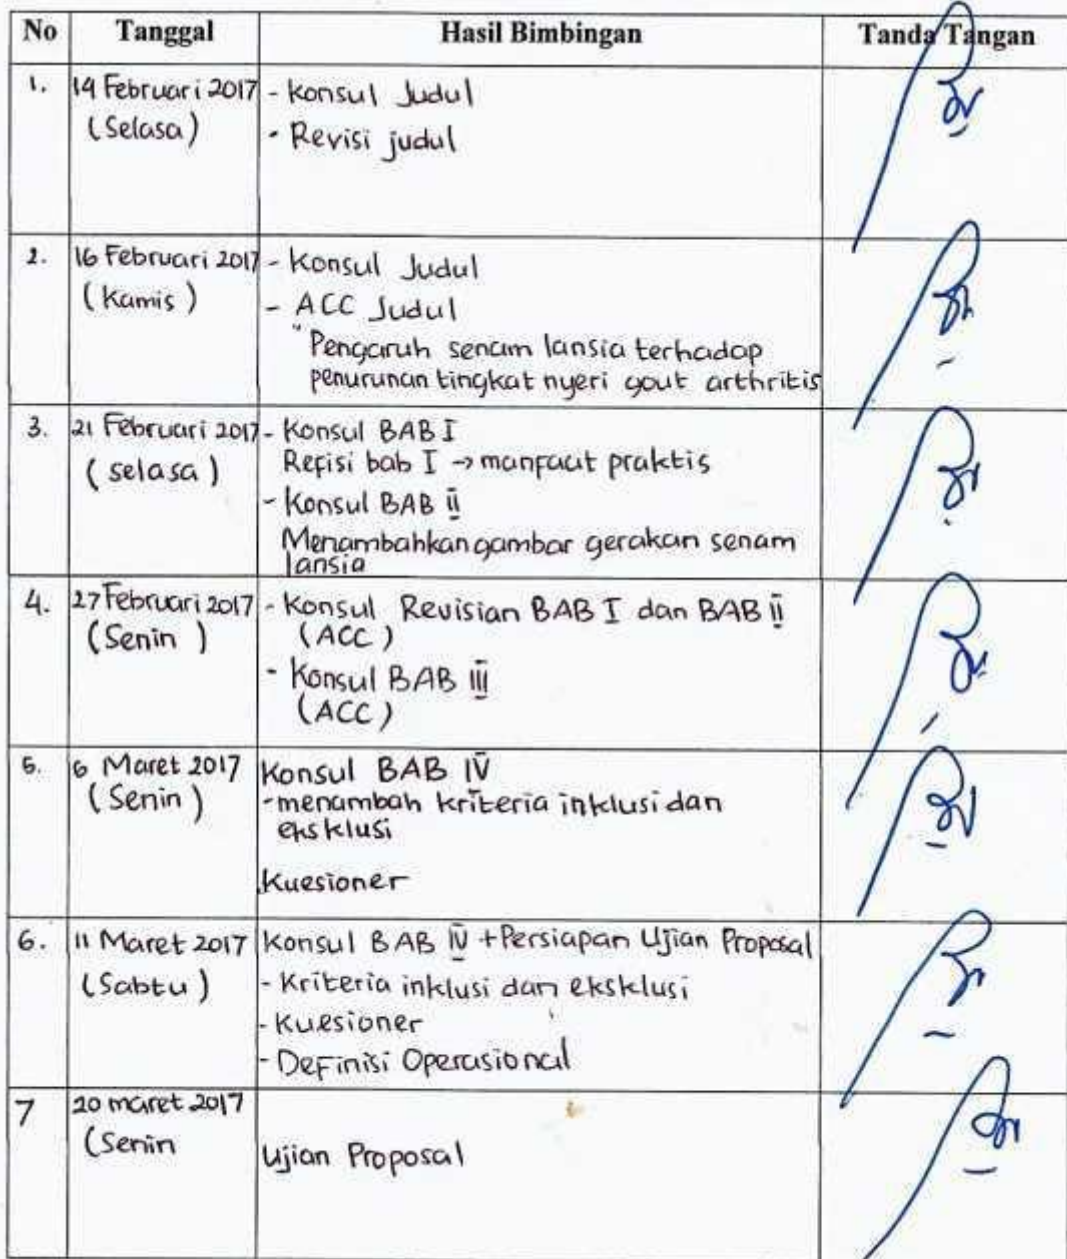 No Tanggal Hasil Bimbingan Tanda Tangan
1. 14 Februari 2017 - Konsul Judul
(Selasa) - Revisi judul
2. 16 Februari 2017 - Konsul Judul
(Kamis) - ACC Judul
"Pengaruh senam lansia terhadap
penurunan tingkat nyeri gout arthritis
3. 21 Februari 2017 - Konsul BAB I
Refisi bab I → manfaat praktis
(selasa)
- Konsul BAB II
Menambahkan gambar gerakan senam
lansia
4. 27 Februari 2017 - Konsul Revisian BAB I dan BAB II
(Senin) (ACC)
- Konsul BAB III
(ACC)
5. 6 Maret 2017 Konsul BAB IV
(Senin) - menambah kriteria inklusi dan
eksklusi
Kuesioner
6. 11 Maret 2017 Konsul BAB IV + Persiapan Ujian Proposal
(Sabtu) - Kriteria inklusi dan eksklusi
- Kuesioner
- Definisi Operasional
7 20 maret 2017
(Senin Ujian Proposal